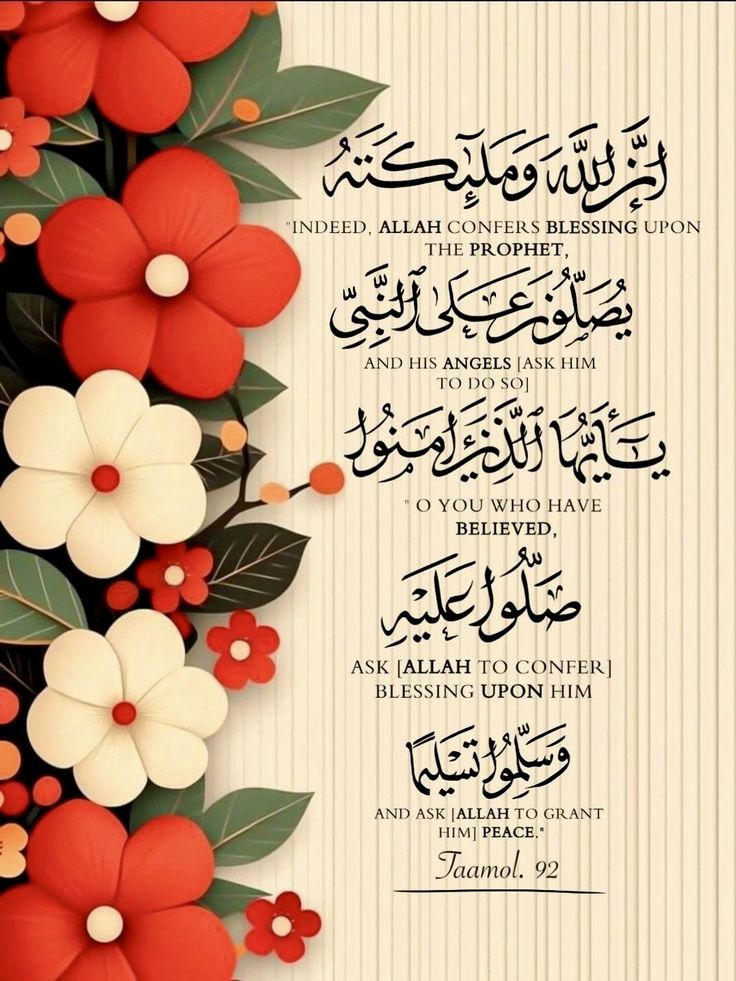 إِنَّ اللَّهَ وَمَلَٰٓئِكَتَهُ
"INDEED, ALLAH CONFERS BLESSING UPON
THE PROPHET,
يُصَلُّونَ عَلَى ٱلنَّبِيِّ
AND HIS ANGELS [ASK HIM
TO DO SO]
يَٰٓأَيُّهَا ٱلَّذِينَ ءَامَنُوا
" O YOU WHO HAVE
BELIEVED,
صَلُّوا عَلَيْهِ
ASK [ALLAH TO CONFER]
BLESSING UPON HIM
وَسَلِّمُوا تَسْلِيمًا
AND ASK [ALLAH TO GRANT
HIM] PEACE."
Taamol. 92